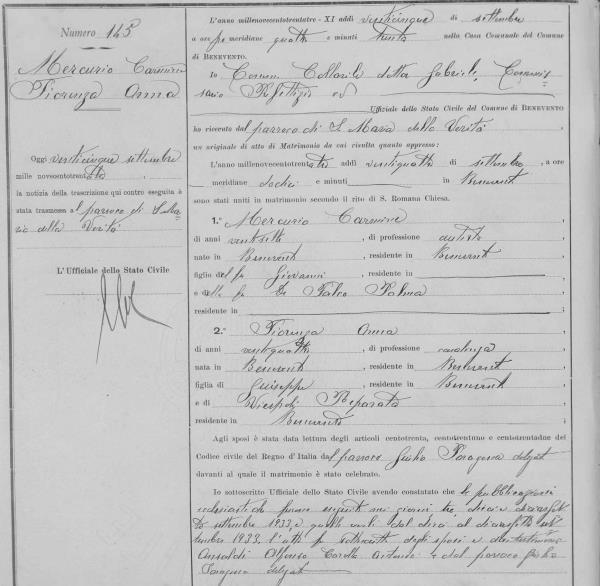 Numero 145
Mercurio Carmine
Fiorenza Anna
Oggi venticinque settembre
mille novecentotrenta
la notizia della trascrizione qui contro eseguita è
stata trasmessa al parroco di S. Ma
ria della Verità
L'Ufficiale dello Stato Civile
L'anno millenovecentotrentatre - XI addì venticinque di settembre
a ore pomeridiane quattro e minuti trenta nella Casa Comunale del Comune
di BENEVENTO.
Io Comm. Gabriele, Commis
sario Prefettizio
Ufficiale dello Stato Civile del Comune di BENEVENTO
ho ricevuto dal parroco di S. Maria della Verità
un originale di atto di Matrimonio da cui risulta quanto appresso:
L'anno millenovecentotrentatre addì ventiquattro di settembre, a ore
meridiane dodici e minuti in Benevento
sono stati uniti in matrimonio secondo il rito di S. Romana Chiesa.
1.° Mercurio Carmine
di anni ventisette, di professione autista
nato in Benevento, residente in Benevento
figlio del fu Giovanni, residente in
e della fu De Falco Palma
residente in
2.° Fiorenza Anna
di anni ventiquattro, di professione casalinga
nata in Benevento, residente in Benevento
figlia di Giuseppe, residente in Benevento
e di Reparata
residente in Benevento
Agli sposi è stata data lettura degli articoli centotrenta, centotrentuno e centotrentadue del
Codice civile del Regno d'Italia dal parroco Giulio delegato
davanti al quale il matrimonio è stato celebrato.
Io sottoscritto Ufficiale dello Stato Civile avendo constatato che le pubblicazioni
ecclesiastiche furono eseguite nei giorni tre, dieci e diciassette
settembre 1933, e quelle civili dal dieci al diciassette set
tembre 1933. l'atto fu sottoscritto dagli sposi e dai testimoni
Alfonso Antonio e dal parroco Giulio
delegato